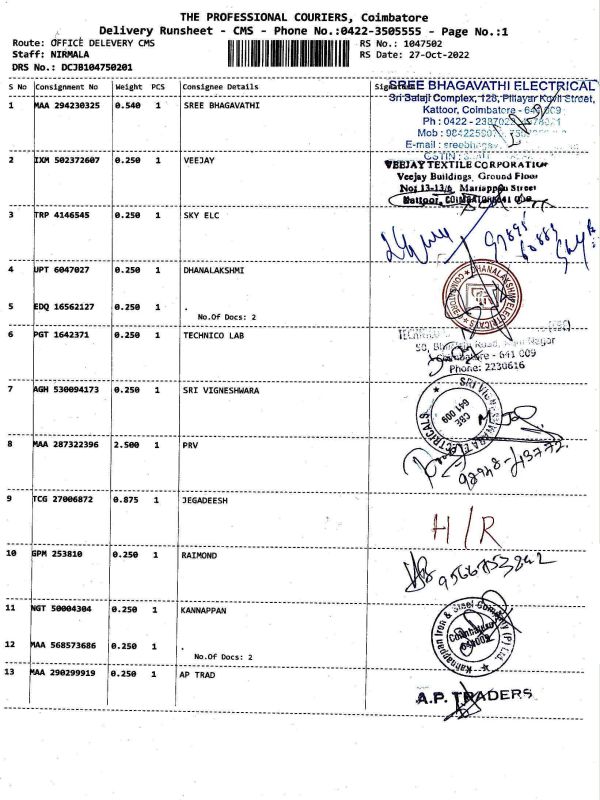 THE PROFESSIONAL COURIERS, Coimbatore
Delivery Runsheet - CMS - Phone No.:0422-3505555 - Page No.:1
Route: OFFICE DELEVERY CMS
RS No.: 1047502
Staff: NIRMALA
RS Date: 27-Oct-2022
DRS No.: DCJB104750201
S No Consignment No Weight PCS Consignee Details
1 MAA 294230325 0.540 1 SREE BHAGAVATHI
SREE BHAGAVATHI ELECTRICAL
Sri Balaji Complex, 128, Pillayar Kovil Street,
Kattoor, Coimbatore - 641 009
Ph : 0422 -
Mob :
E-mail :
GSTIN :
2 IXM 502372607 0.250 1 VEEJAY
VEEJAY TEXTILE CORPORATION
Veejay Buildings, Ground Floor
No: 13-13/6, Mariappan Street
Kattoor, COIMBATORE-641
3 TRP 4146545 0.250 1 SKY ELC
4 UPT 6047027 0.250 1 DHANALAKSHMI
DHANALAKSHMI ELECTRICALS
COIMBATORE
5 EDQ 16562127 0.250 1 .
No.Of Docs: 2
6 PGT 1642371 0.250 1 TECHNICO LAB
Nagar
Coimbatore - 641 009
Phone: 2230616
7 AGH 530094173 0.250 1 SRI VIGNESHWARA
SRI VIGNESHWARA ELECTRICALS
CBE
641 009
8 MAA 287322396 2.500 1 PRV
98948-43772
9 TCG 27006872 0.875 1 JEGADEESH
H/R
10 GPM 253810 0.250 1 RAIMOND
9566753892
11 NGT 50004304 0.250 1 KANNAPPAN
Kannappan Iron & Steel Company (P) Ltd.
Coimbatore
641009
12 MAA 568573686 0.250 1 .
No.Of Docs: 2
13 MAA 290299919 0.250 1 AP TRAD
A.P. TRADERS